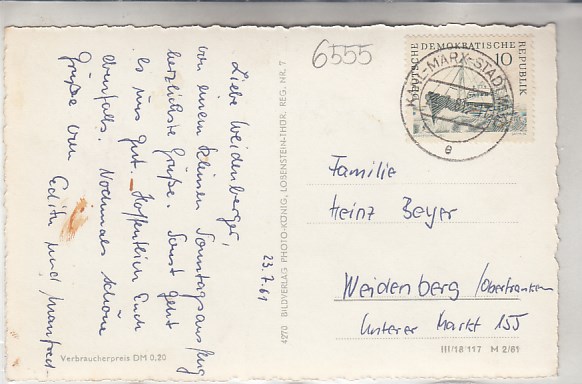 6555
DEUTSCHE DEMOKRATISCHE REPUBLIK
10
KARL-MARX-STADT
e
23.7.61
Liebe Weidenberger,
von einem kleinen Sonntagsausflug
herzlichste Grüße. Sonst geht
es uns gut. Hoffentlich Euch
ebenfalls. Nochmals schöne
Grüße von Edith und Manfred.
Verbraucherpreis DM 0,20
4270 BILDVERLAG PHOTO-KÖNIG, LOBENSTEIN-THÜR. REG. NR. 7
Familie
Heinz Beyer
Weidenberg /Oberfranken
Unterer Markt 155
III/18 117 M 2/61